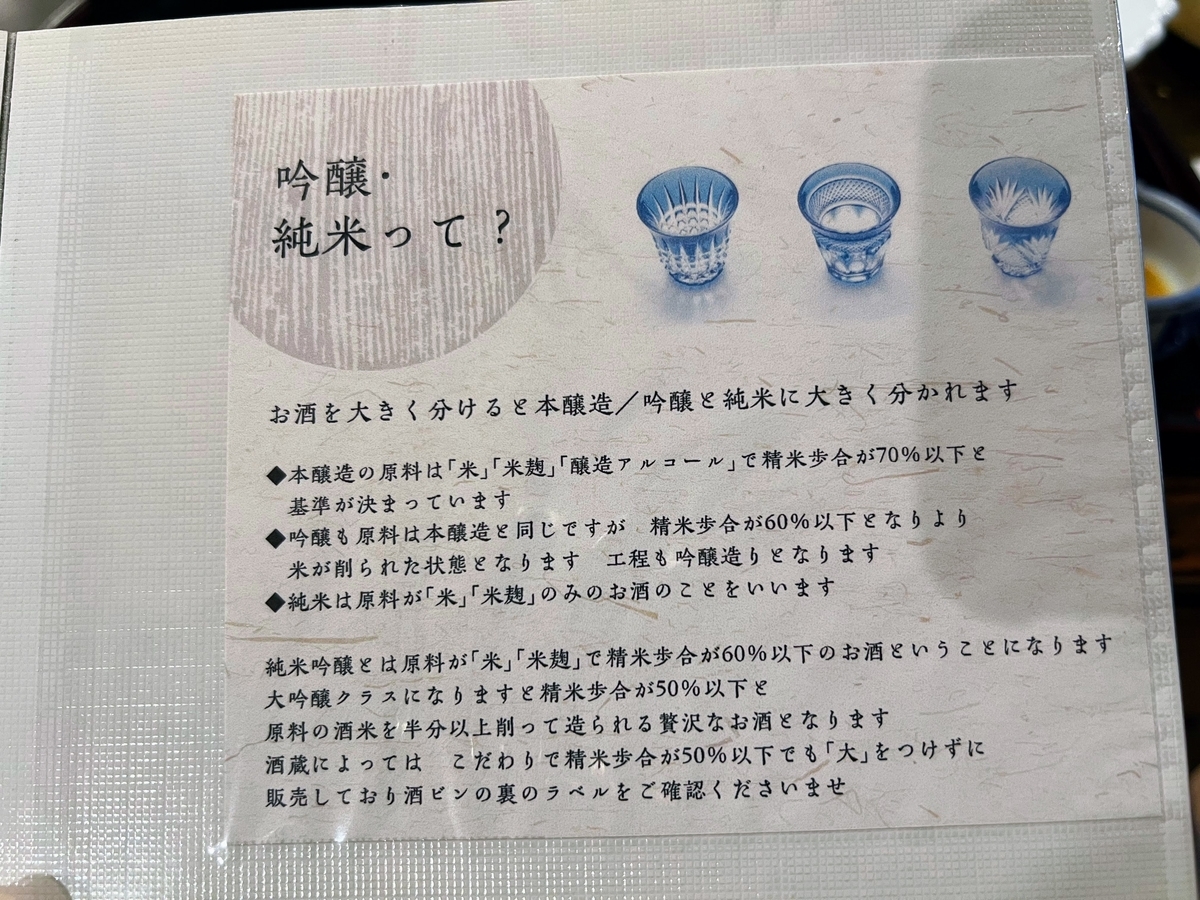 吟醸・
純米って？
お酒を大きく分けると本醸造／吟醸と純米に大きく分かれます
◆本醸造の原料は「米」「米麹」「醸造アルコール」で精米歩合が70％以下と
基準が決まっています
◆吟醸も原料は本醸造と同じですが　精米歩合が60％以下となりより
米が削られた状態となります　工程も吟醸造りとなります
◆純米は原料が「米」「米麹」のみのお酒のことをいいます
純米吟醸とは原料が「米」「米麹」で精米歩合が60％以下のお酒ということになります
大吟醸クラスになりますと精米歩合が50％以下と
原料の酒米を半分以上削って造られる贅沢なお酒となります
酒蔵によっては　こだわりで精米歩合が50％以下でも「大」をつけずに
販売しており酒ビンの裏のラベルをご確認くださいませ